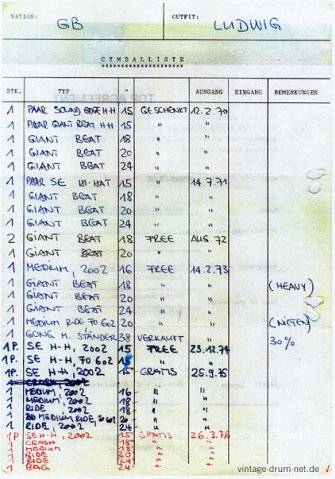 NATION: GB OUTFIT: LUDWIG
CYMBALLISTE
STK. TYP " AUSGANG EINGANG BEMERKUNGEN
1 PAAR SOUND EDGE H-H 15 GESCHENKT 12.2.70
1 PAAR GIANT BEAT H-H 15 " "
1 GIANT BEAT 18 " "
1 GIANT BEAT 20 " "
1 GIANT BEAT 24 " "
1 PAAR SE HI-HAT 15 " 14.7.71
1 GIANT BEAT 18 " "
1 GIANT BEAT 20 " "
1 GIANT BEAT 24 " "
2 GIANT BEAT 18 FREE AUG. 72
1 GIANT BEAT 20 " "
1 MEDIUM, 2002 16 FREE 14.2.73
1 GIANT BEAT 18 " " (HEAVY)
1 GIANT BEAT 20 " "
1 GIANT BEAT 24 " "
1 MEDIUM RIDE FO 602 20 " " (NIETEN)
1 GONG M. STÄNDER 38 VERKAUFT " 30%
1P. SE H-H, 2002 15 FREE 23.12.74
1P. SE H-H, FO 602 15 " "
1P. SE H-H, 2002 15 GRATIS 25.9.75
1 CRASH 2002
1 MEDIUM, 2002 16 " "
1 MEDIUM, 2002 18 " "
1 RIDE 2002 18 " "
1 MEDIUM RIDE, FO 602 20 " "
1 RIDE, 2002 24 " "
1P SE H-H, 2002 15 GRATIS 26.3.76
1 CRASH 16 " "
1 MEDIUM 18 " "
1 RIDE 20 " "
1 RIDE 24 " "
1 BAG 24 " "
vintage-drum-net.de